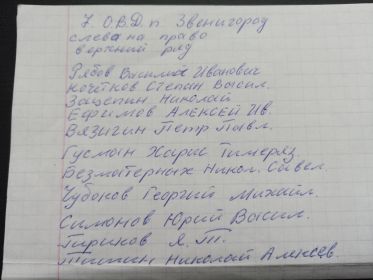 7. О.В.Д. п. Звенигород
слева на право
верхний ряд
Рябов Василий Иванович
Кочетков Степан Васил.
Зацепин Николай
Ефимов Алексей Ив.
Вязигин Петр Павл.
Гусман Харис Тимеряз.
Безматерных Никол. Савел.
Чубаков Георгий Михайл.
Симонов Юрий Васил.
Пириков Я. П.
Николай Алексеев.